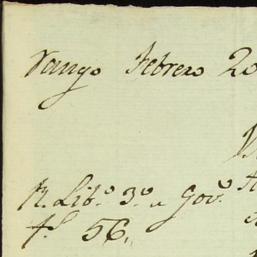 Sango Febrero 20
R. Lib.º 3.º a Gov.º
f.s 56.